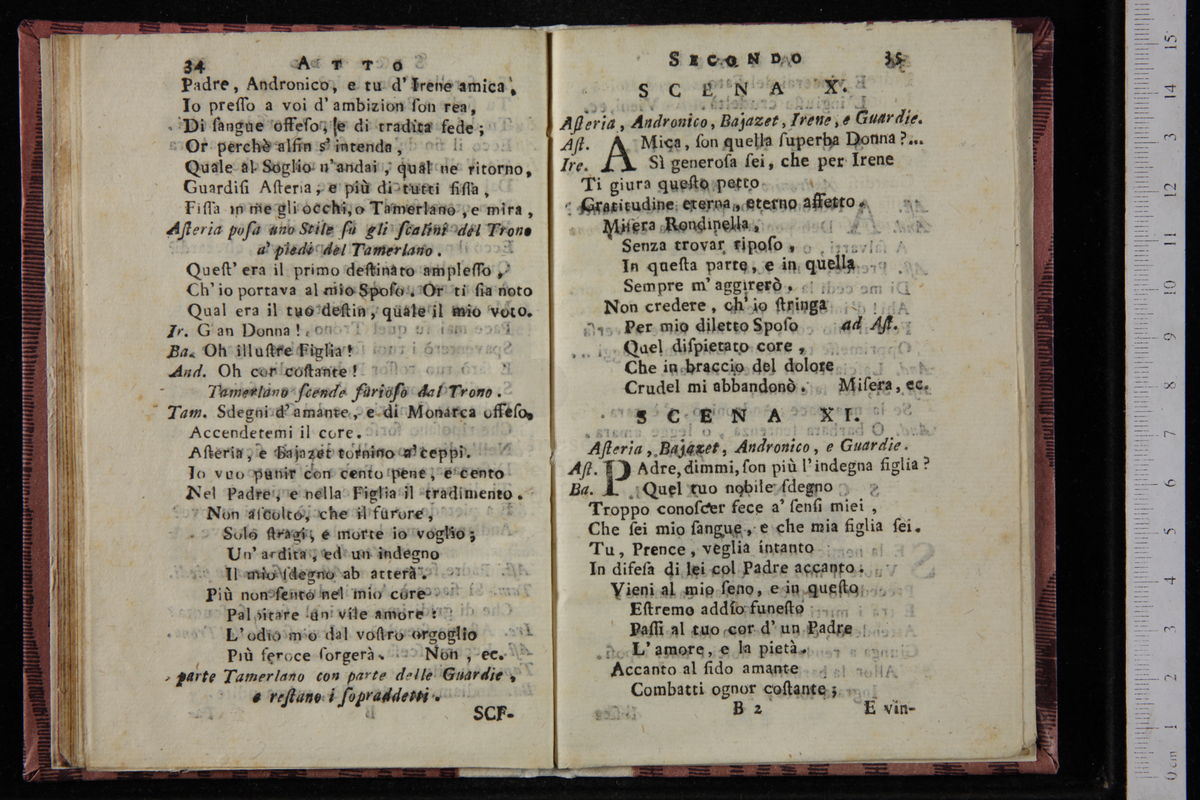 34 ATTO
Padre, Andronico, e tu d' Irene amica,
Io preſſo a voi d' ambizion ſon rea,
Di ſangue offeſo, e di tradita fede;
Or perchè alfin s' intenda,
Quale al Soglio n' andai, qual ne ritorno,
Guardiſi Aſteria, e più di tutti fiſſa,
Fiſſa in me gli occhi, o Tamerlano, e mira,
Aſteria poſa uno Stile ſu gli ſcalini del Trono
a' piedi del Tamerlano.
Queſt' era il primo deſtinato ampleſſo,
Ch' io portava al mio Spoſo. Or ti ſia noto
Qual era il tuo deſtin, quale il mio voto.
Ir. G an Donna!
Ba. Oh illuſtre Figlia!
And. Oh cor coſtante!
Tamerlano ſcende furioſo dal Trono.
Tam. Sdegni d' amante, e di Monarca offeſo,
Accendetemi il core.
Aſteria, e Bajazet tornino a' ceppi.
Io vuo punir con cento pene, e cento
Nel Padre, e nella Figlia il tradimento.
Non aſcolto, che il furore,
Solo ſtragi, e morte io voglio;
Un' ardita, ed un indegno
Il mio ſdegno ab atterà.
Più non ſento nel mio core
Palpitare un vile amore:
L' odio m o dal voſtro orgoglio
Più feroce ſorgerà. Non, ec.
parte Tamerlano con parte delle Guardie,
e reſtano i ſopraddetti.
SCE-
SECONDO 35
SCENA X.
Aſteria, Andronico, Bajazet, Irene, e Guardie.
Aſt. AMica, ſon quella ſuperba Donna?...
Ire. Sì generoſa ſei, che per Irene
Ti giura queſto petto
Gratitudine eterna, eterno affetto.
Miſera Rondinella,
Senza trovar ripoſo,
In queſta parte, e in quella
Sempre m' aggirerò.
Non credere, ch' io ſtringa
Per mio diletto Spoſo ad Aſt.
Quel diſpietato core,
Che in braccio del dolore
Crudel mi abbandonò. Miſera, ec.
SCENA XI.
Aſteria, Bajazet, Andronico, e Guardie.
Aſt. PAdre, dimmi, ſon più l' indegna figlia?
Ba. Quel tuo nobile ſdegno
Troppo conoſcer fece a' ſenſi miei,
Che ſei mio ſangue, e che mia figlia ſei.
Tu, Prence, veglia intanto
In difeſa di lei col Padre accanto.
Vieni al mio ſeno, e in queſto
Eſtremo addſo funeſto
Paſſi al tuo cor d' un Padre
L' amore, e la pietà.
Accanto al fido amante
Combatti ognor coſtante;
B 2 E vin-
0 cm 1 2 3 4 5 6 7 8 9 10 11 12 13 14 15